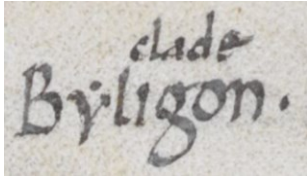 clade
Bẏligon.